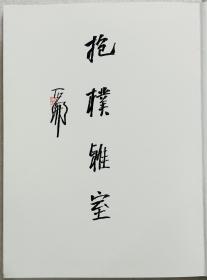 抱樸雅室